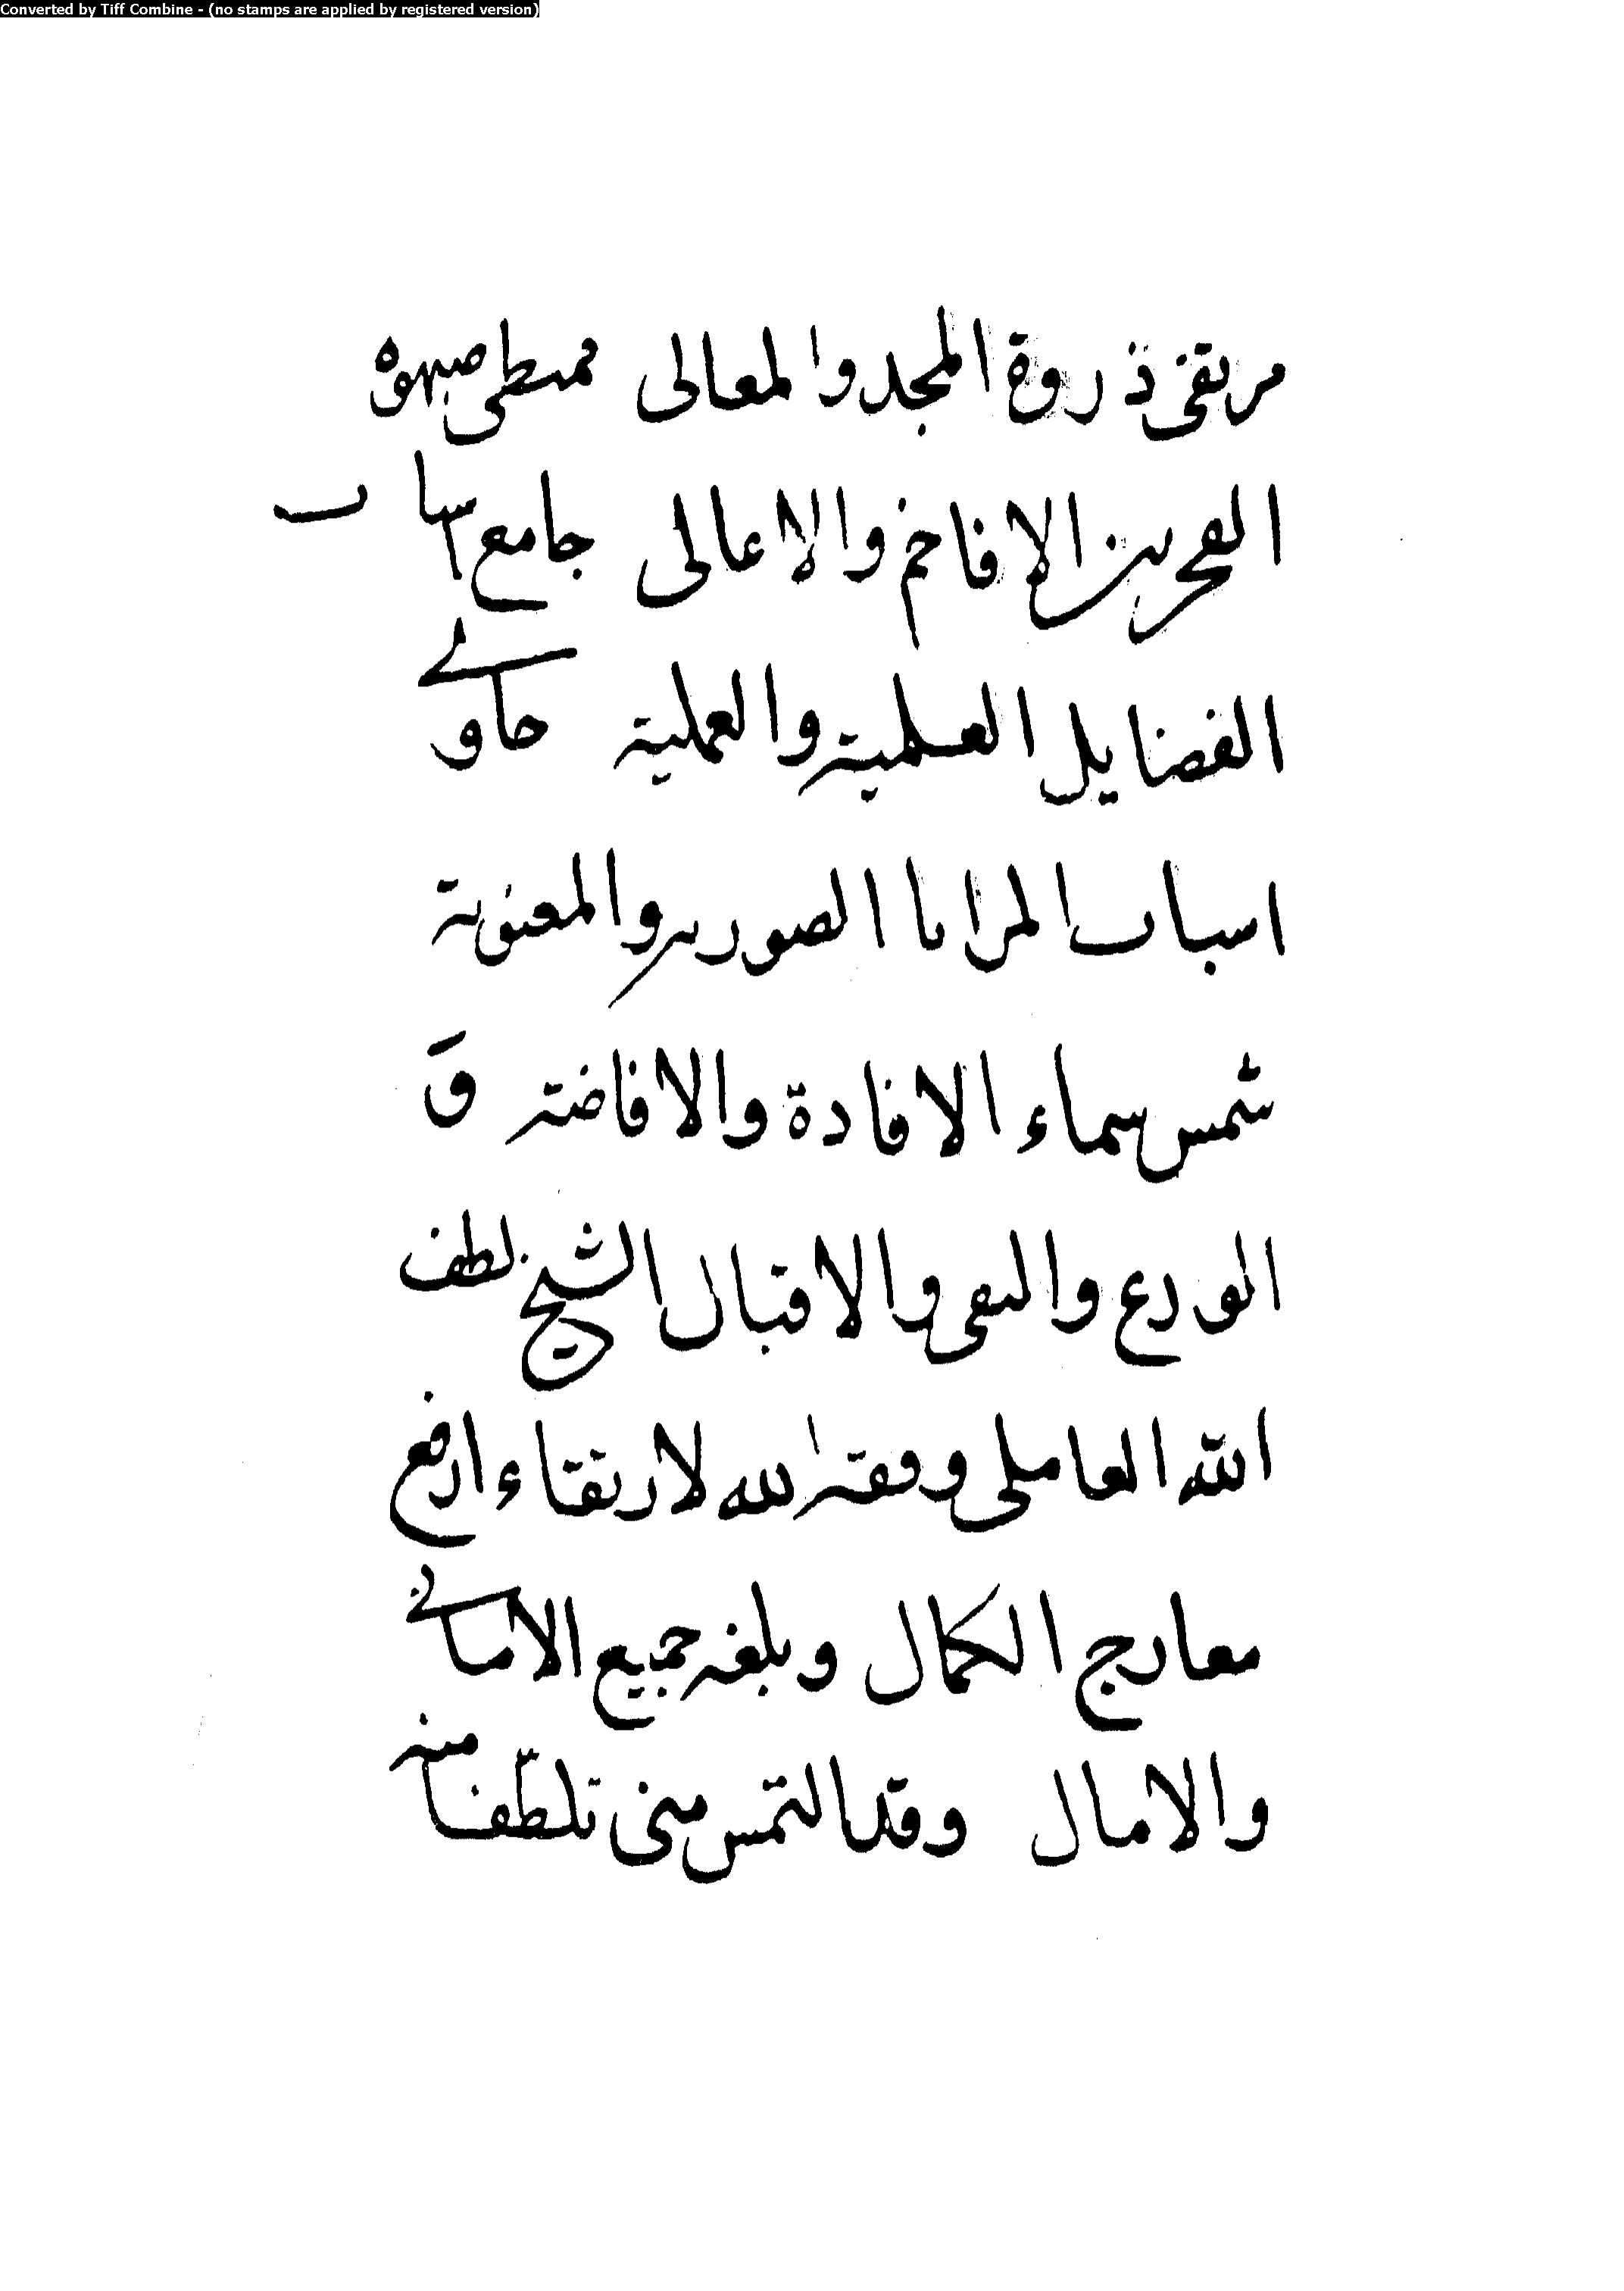 Converted by Tiff Combine - (no stamps are applied by registered version)
مرتقى ذروة المجد والمعالى ممتطى صهوة
الفخر بين الافاخم والاعالى جامع اسباب
الفضايل العلمية والعملية حاوى
اسباب المزايا الصورية والمعنوية
شمس سماء الافادة والافاضة و
الورع والتقى والاقبال الشيخ لطف
الله العاملى وفقه الله لارتقاء ارفع
معارج الكمال وبلغه جميع الامانى
والامال وقد التمس منى تلطّفا منه